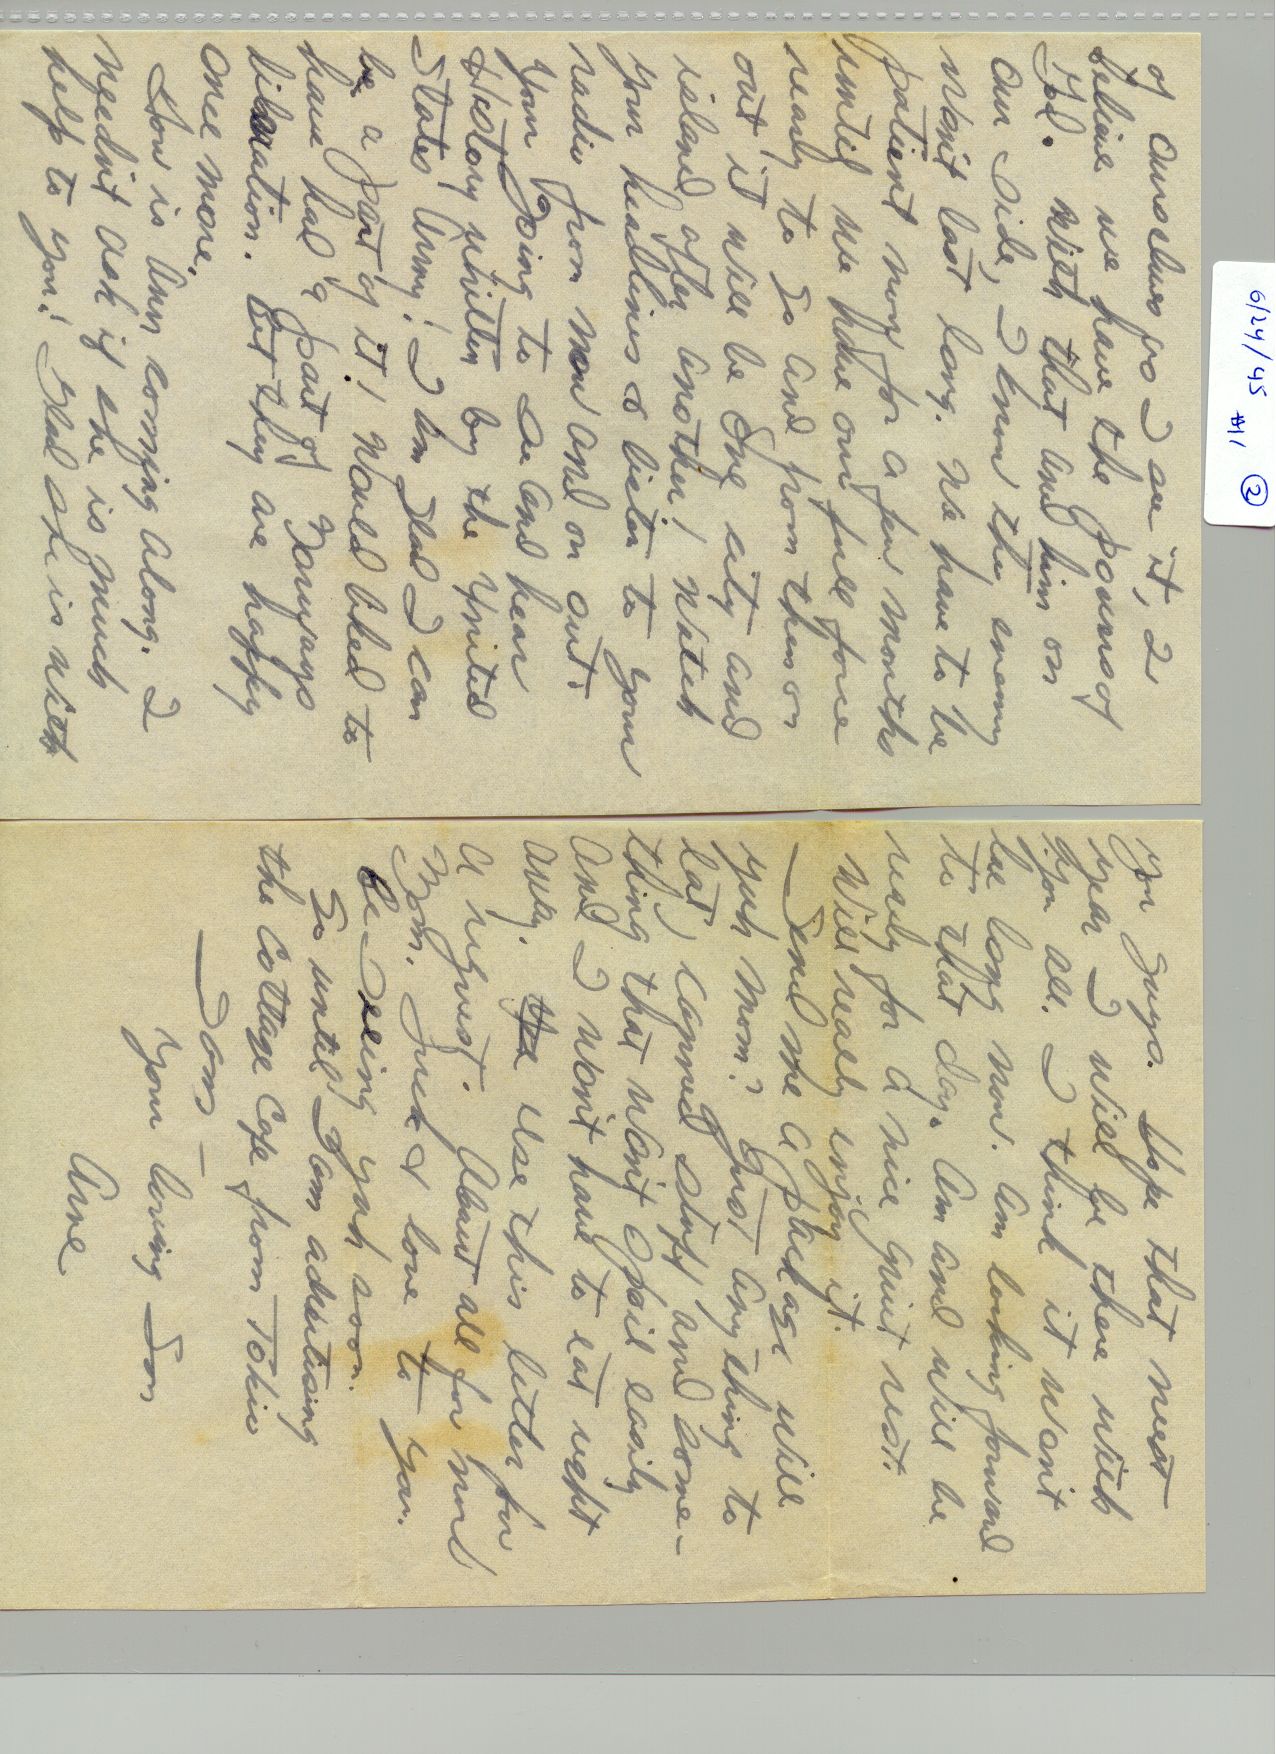 6/24/45 #1 ②
of ourselves as I see it, I
believe we have the powers of
God. With that and him on
our side, I know the enemy
won't last long. We have to be
patient now for a few months
until we have our full force
ready to go and from then on
out it will be one city and
island after another! Watch
your headlines & listen to your
radio from now and on out.
Your going to see and hear
History written by the United
States Army! I am glad I can
be a part of it! Would liked to
have had a part of Norways
liberation. But they are happy
once more.
How is Ann coming along. I
needn't ask if she is much
help to you! Glad she is with
you guys. Hope that next
year I will be there with
you all. I think it won't
be long now. Am looking forward
to that day. Am and will be
ready for a nice quiet rest.
Will really enjoy it.
Send me a package will
yuh Mom? Just anything to
eat, canned stuff and some-
thing that won't spoil easily
and I won't have to eat right
away. Use this letter for
a request. About all for now
Mom. Luck & love to you.
Be seeing yah soon.
So until I am advertising
the Cottage Cafe from Tokio
Your loving Son
Arne